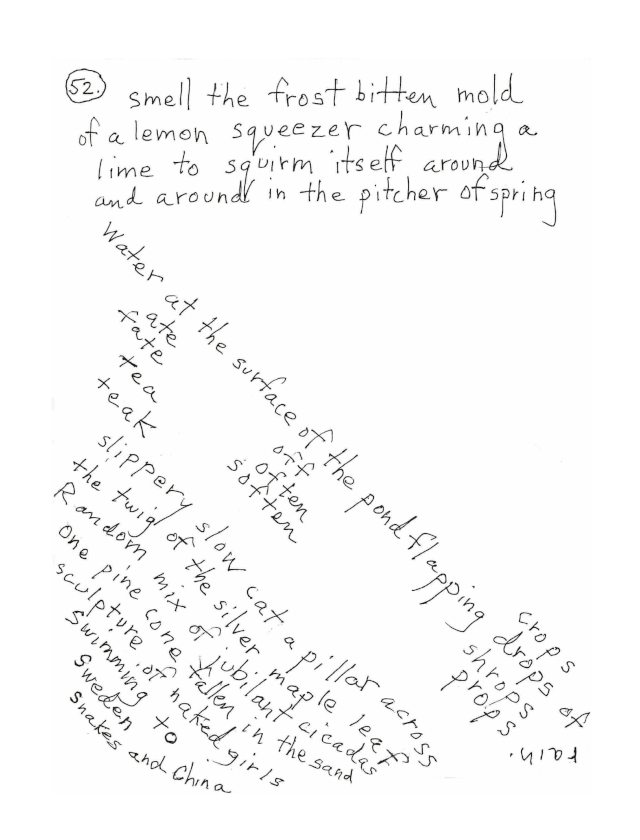 52. smell the frost bitten mold
of a lemon squeezer charming a
lime to squirm itself around
and around in the pitcher of spring
Water at the surface of the pond flapping drops of
rain.
ate
fate
tea
teak
off
often
soften
crops
shrops
props
slippery slow cat a pillar across
the twig of the silver maple leaf
Random mix of jubilant cicadas
One pine cone fallen in the sand
sculpture of naked girls
Swimming to
Sweden to
snakes and China